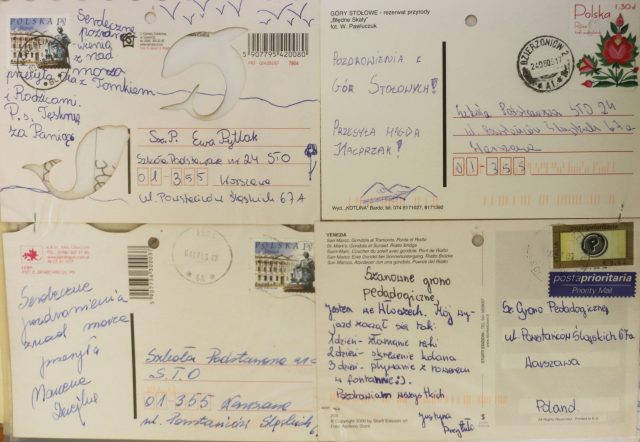 Serdeczne
pozdro-
wienia
z nad
morza
przesyła Ola z Tomkiem
i Rodzicami.
P.s. Tęsknię
za Panią
POLSKA 1,30 zł
5 907795 420080
Sz. P. Ewa Pytlak
Szkoła Podstawowa nr 24 STO
01-355 Warszawa
ul. Powstańców Śląskich 67A
GÓRY STOŁOWE - rezerwat przyrody
„Błędne Skały"
fot. W. Pawluczuk
Polska 1,30 ZŁ
DZIERŻONIÓW
POZDROWIENIA Z
GÓR STOŁOWYCH!
PRZESYŁA MAGDA
KACPRZAK!
Szkoła Podstawowa STO 24
ul. Powstańców Śląskich 67a
Warszawa
01-355
Wyd. „KOTUNIA" Bardo, tel. 074 8171027, 8171360
Serdeczne
pozdrowienia
znad morza
przesyła
Marcena
POLSKA
Szkoła Podstawowa nr
S.T.O
01-355 Warszawa
ul. Powstańców Śląskich
VENEZIA
San Marco, Gondole al Tramonto, Ponte di Rialto
Szanowne grono
pedagogiczne
Jestem we Włoszech. Mój wy-
jazd zaczął się tak:
1 dzień - złamanie ręki
2 dzień - skręcenie kolana
3 dzień - pływanie z rowerem
w fontannie :).
Pozdrawiam wszystkich
Justyna
postaprioritaria
Priority Mail
Sz. Grono Pedagogiczne
ul. Powstańców Śląskich 67a
Warszawa
Poland